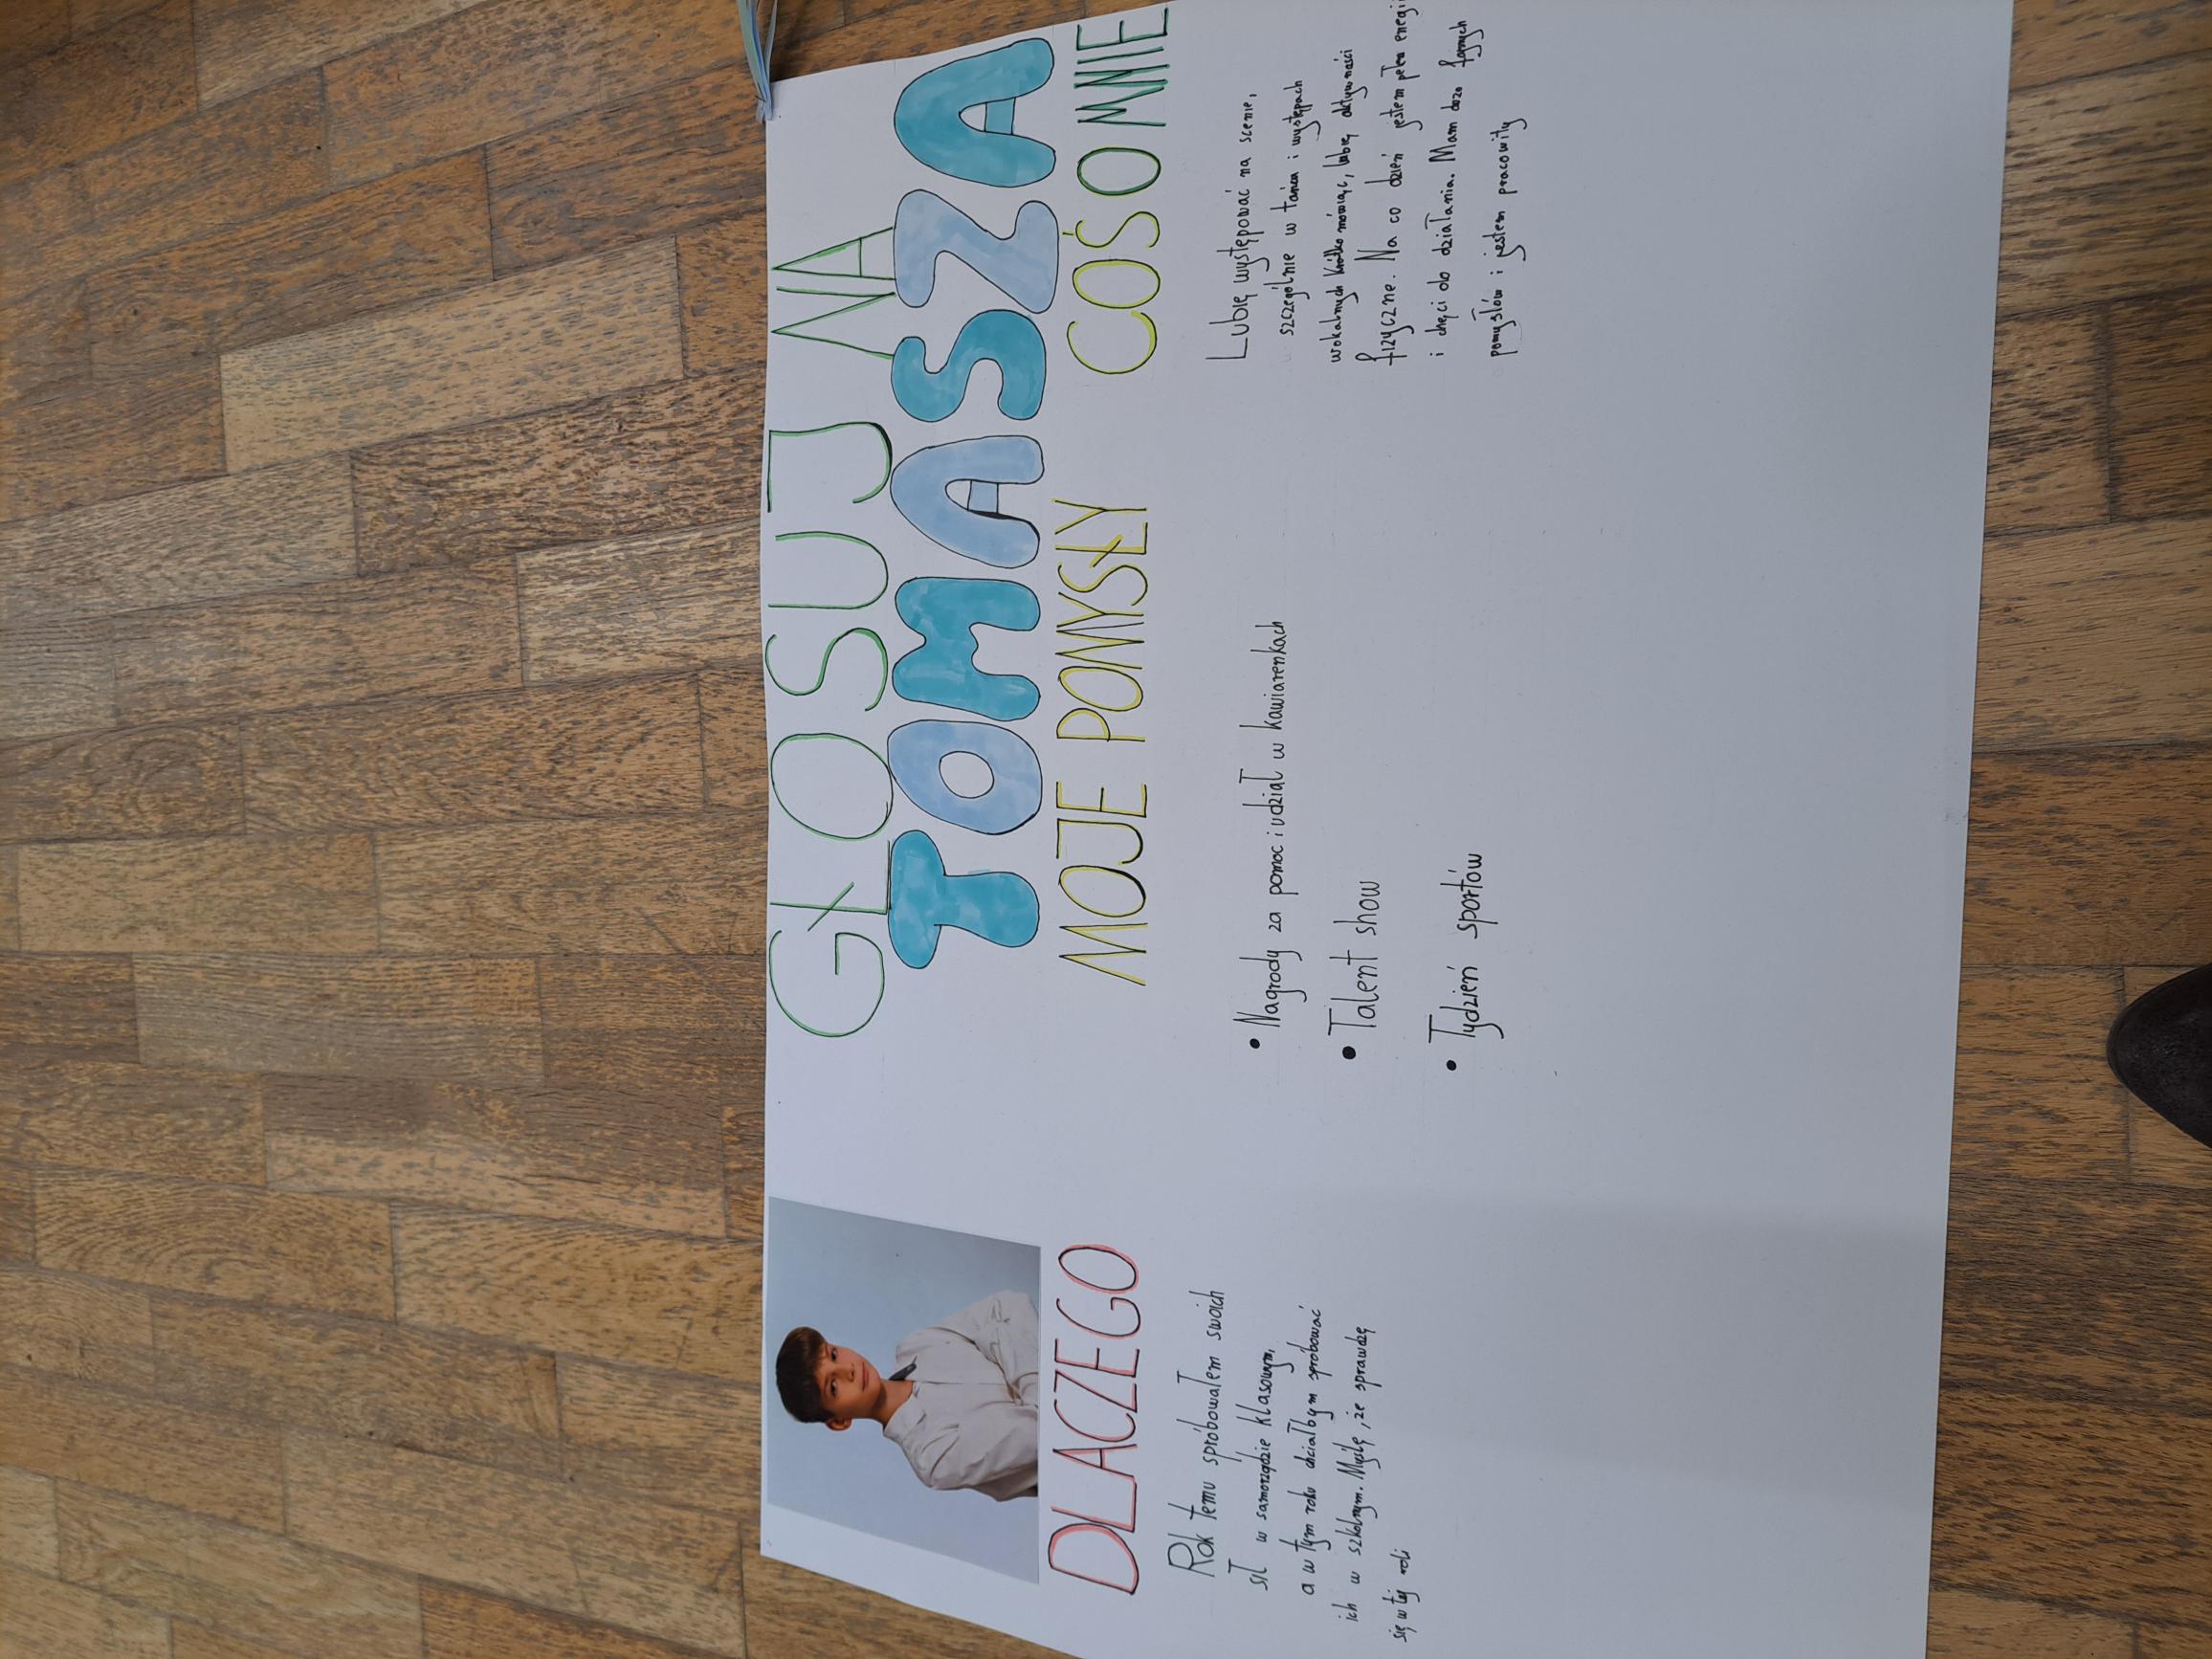 GŁOSUJ NA
TOMASZA
DLACZEGO
Rok temu spróbowałem swoich
sił w samorządzie klasowym,
a w tym roku chciałbym spróbować
ich w szkolnym. Myślę, że sprawdzę
się w tej roli
MOJE POMYSŁY
• Nagrody za pomoc i udział w kawiarenkach
• Talent show
• Tydzień sportów
COŚ O MNIE
Lubię występować na scenie,
szczególnie w tańcu i występach
wokalnych krótko mówiąc, lubię aktywności
fizyczne. Na co dzień jestem pełen energii
i chęci do działania. Mam dozo fajnych
pomysłów i jestem pracowity